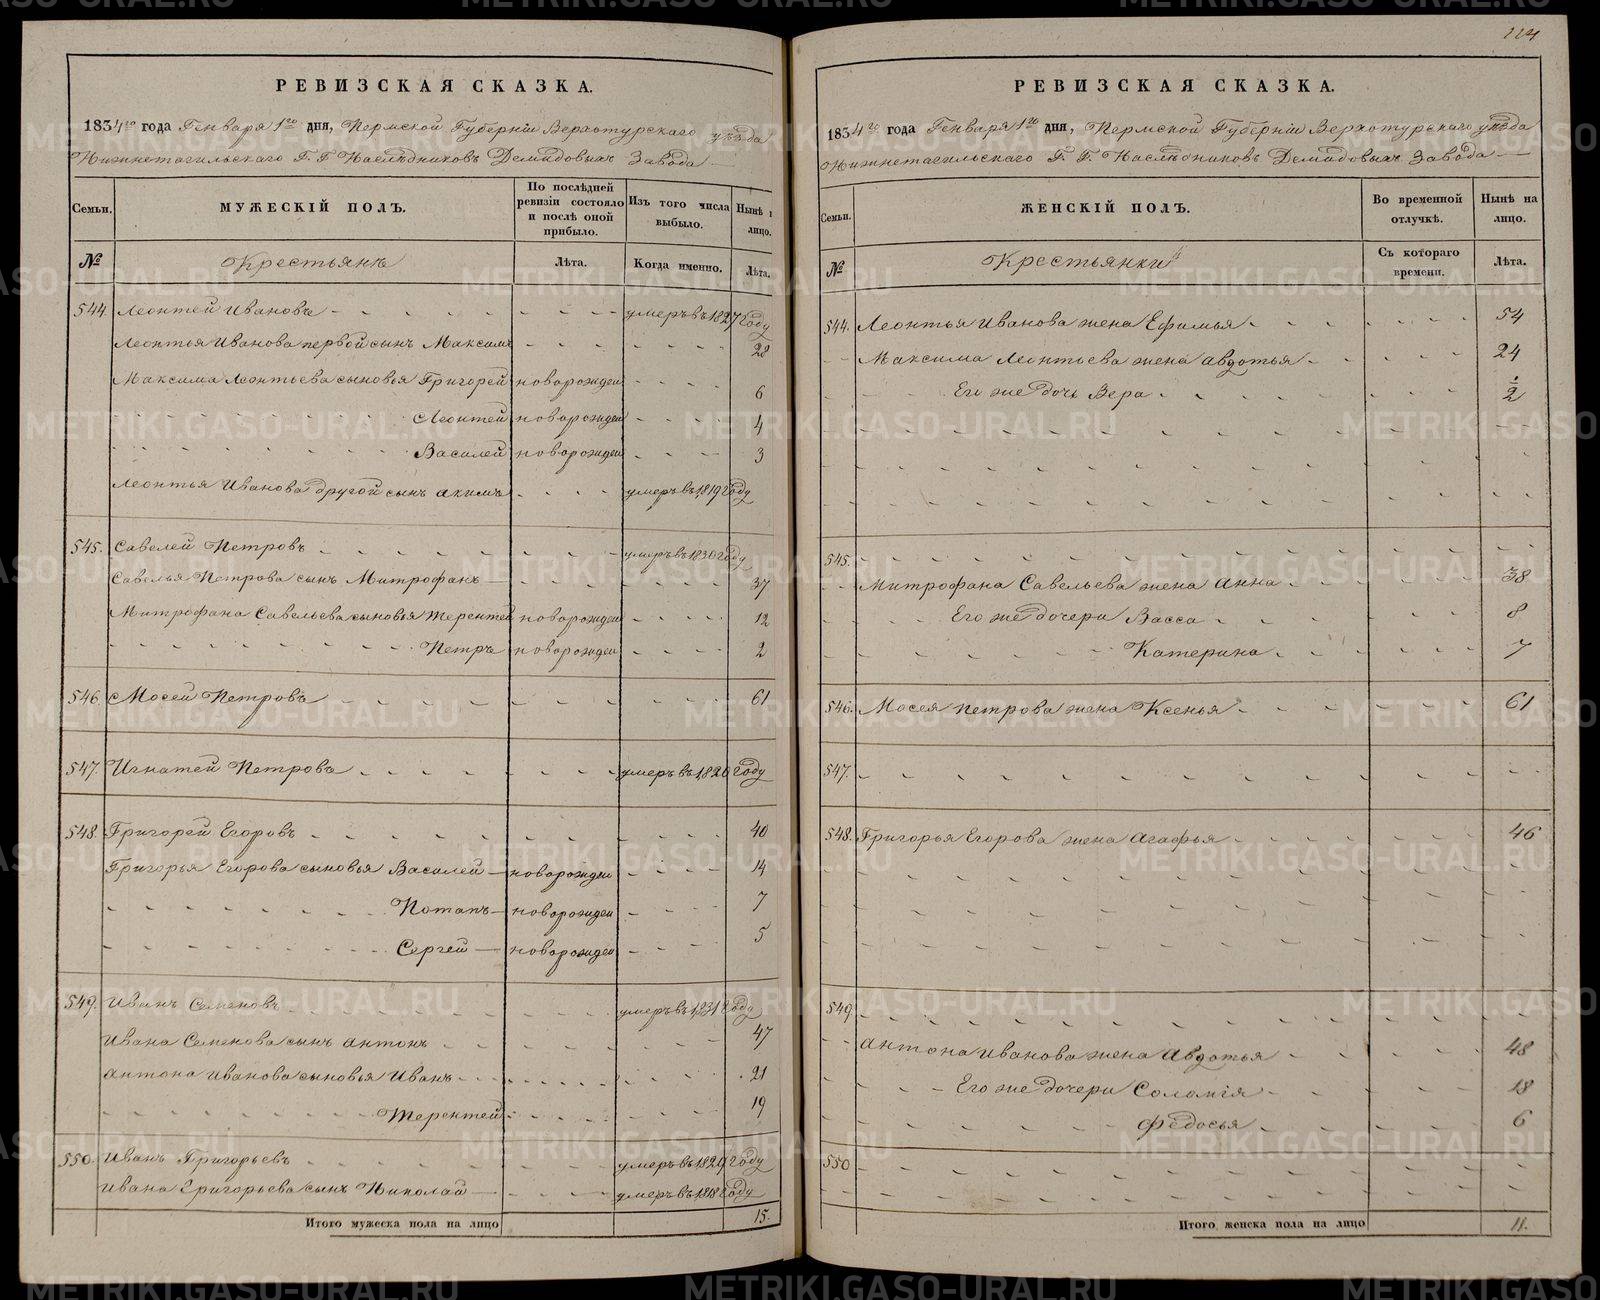 224
РЕВИЗСКАЯ СКАЗКА.
1834го года Генваря 1го дня, Пермской Губерніи Верхотурскаго уѣзда
Нижнетагильскаго Г. Г. Наслѣдниковъ Демидовыхъ Завода
Семьи.
МУЖЕСКІЙ ПОЛЪ.
По послѣдней ревизіи состояло и послѣ оной прибыло.
Изъ того числа выбыло.
Нынѣ на лицо.
№
Крестьянъ
Лѣта.
Когда именно.
Лѣта.
544. Леонтей Ивановъ умеръ въ 1827 Году
Леонтья Иванова первой сынъ Максимъ 28
Максима Леонтьева сыновья Григорей новорожден 6
Леонтей новорожден 4
Василей новорожден 3
Леонтья Иванова другой сынъ Акимъ умеръ въ 1819 Году
545. Савелей Петровъ умеръ въ 1830 Году
Савелья Петрова сынъ Митрофанъ 37
Митрофана Савельева сыновья Терентей новорожден 12
Петръ новорожден 2
546. Мосей Петровъ 61
547. Игнатей Петровъ умеръ въ 1826 Году
548. Григорей Егоровъ 40
Григорья Егорова сыновья Василей новорожден 14
Потапъ новорожден 7
Сергей новорожден 5
549. Иванъ Семеновъ умеръ въ 1831 Году
Ивана Семенова сынъ Антонъ 47
Антона Иванова сыновья Иванъ 21
Терентей 19
550. Иванъ Григорьевъ умеръ въ 1829 Году
Ивана Григорьева сынъ Николай умеръ въ 1818 Году
Итого мужеска пола на лицо 15.
РЕВИЗСКАЯ СКАЗКА.
1834го года Генваря 1го дня, Пермской Губерніи Верхотурскаго уѣзда
Нижнетагильскаго Г. Г. Наслѣдниковъ Демидовыхъ Завода
Семьи.
ЖЕНСКІЙ ПОЛЪ.
Во временной отлучкѣ.
Нынѣ на лицо.
№
Крестьянки
Съ котораго времени.
Лѣта.
544. Леонтья Иванова жена Ефимья 54
Максима Леонтьева жена Авдотья 24
Его же дочь Вера 1/2
545.
Митрофана Савельева жена Анна 38
Его же дочери Васса 8
Катерина 7
546. Мосея Петрова жена Ксенья 61
547.
548. Григорья Егорова жена Агафья 46
549.
Антона Иванова жена Авдотья 48
Его же дочери Соломгія 18
Федосья 6
550
Итого женска пола на лицо 11.
METRIKI.GASO-URAL.RU